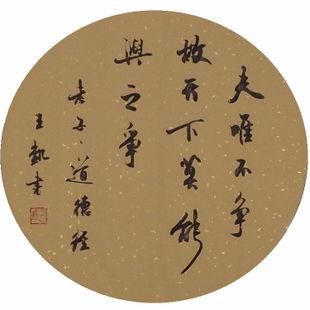 夫唯不争
故天下莫能
與之争
老子·道德經
王凱書